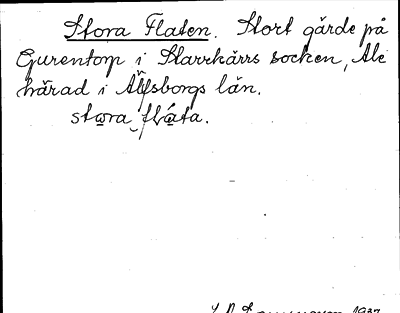 Stora Flaten. Stort gärde på
Gurentorp i Starrkärrs socken, Ale
härad i Älfsborgs län.
stora flåta.
1937